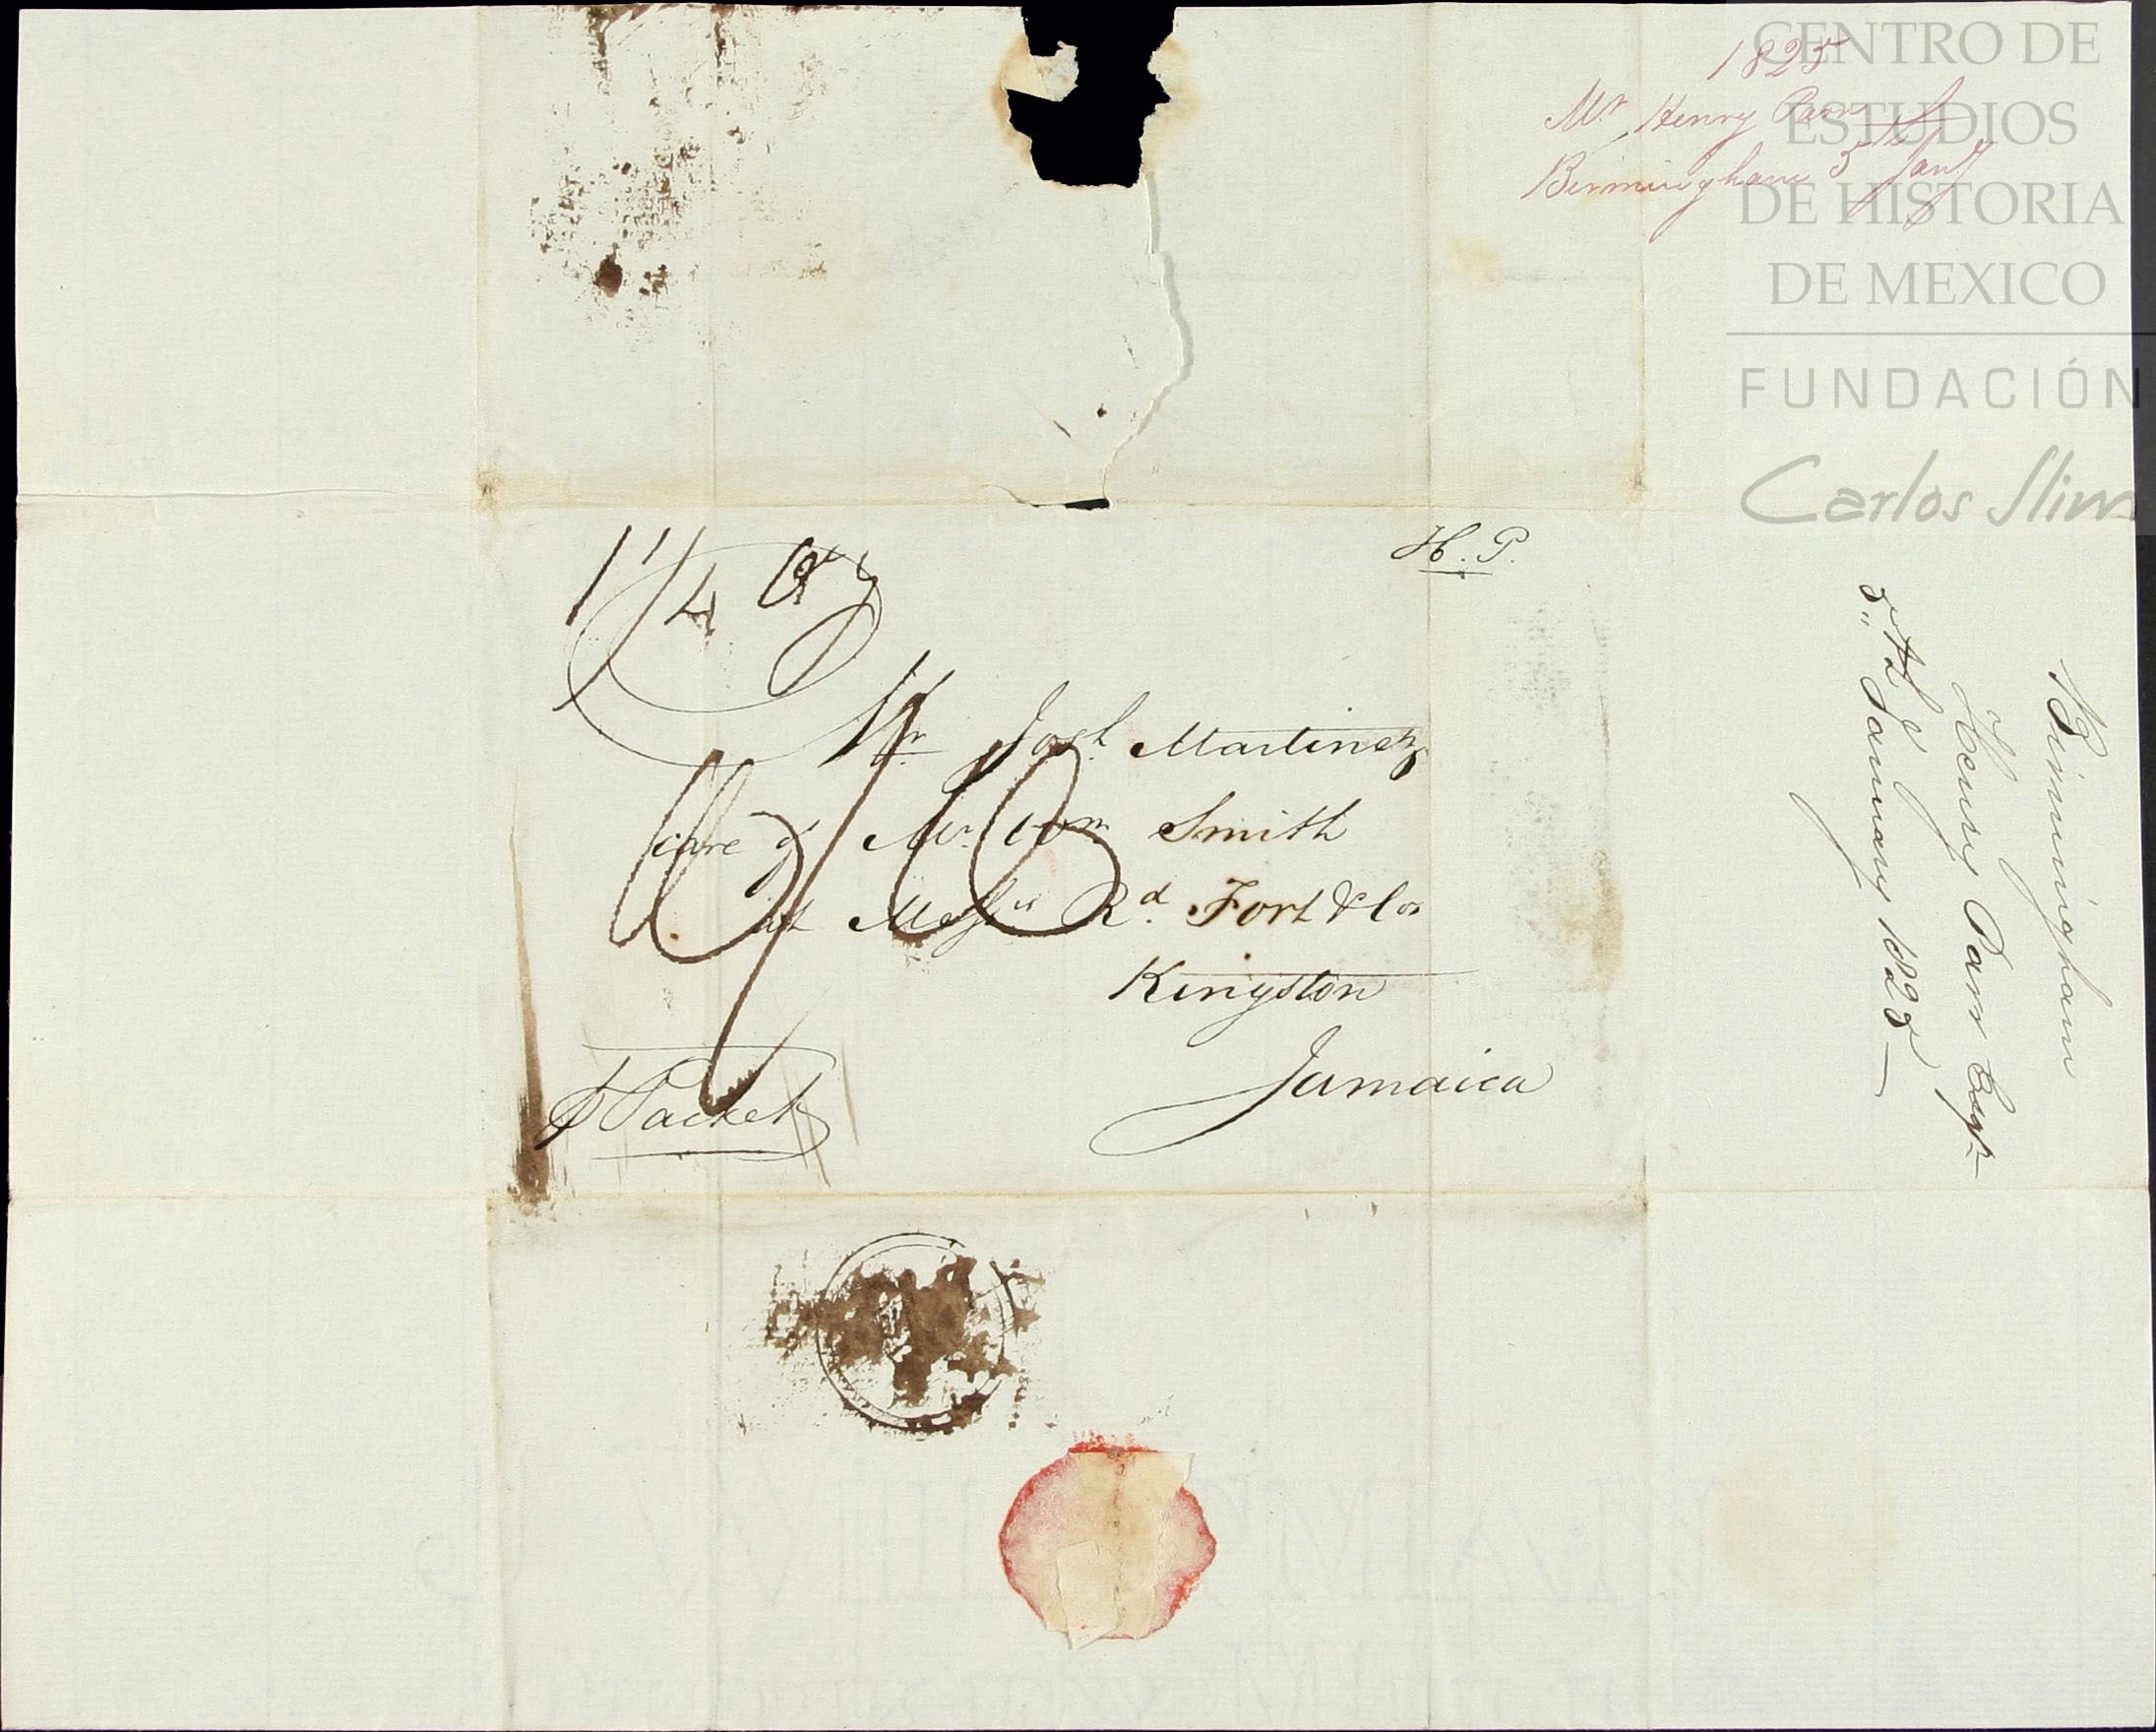 1825
Mr. Henry Parr
Birmingham 5 Jany
CENTRO DE
ESTUDIOS
DE HISTORIA
DE MEXICO
FUNDACIÓN
Carlos Slim
H. P.
1/4
Mr. Josh. Martinez
care of Mr. Wm Smith
at Messrs Rd. Fort & Co
Kingston
Jamaica
Packet
Birmingham
Henry Parr Esqr
5 January 1825